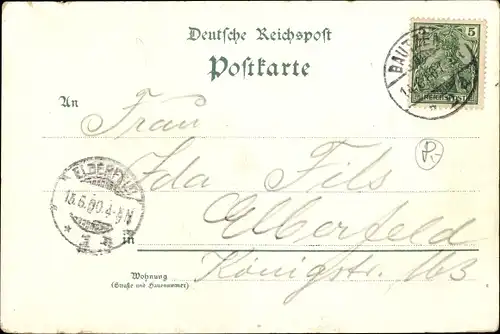 Deutsche Reichspost
Postkarte
5
BAUTZEN
REICHSPOST
An
Frau
Ida Fils
ELBERFELD
15.6.00.4-5N
in
Elberfeld
Königstr. 163
Wohnung
(Straße und Hausnummer)